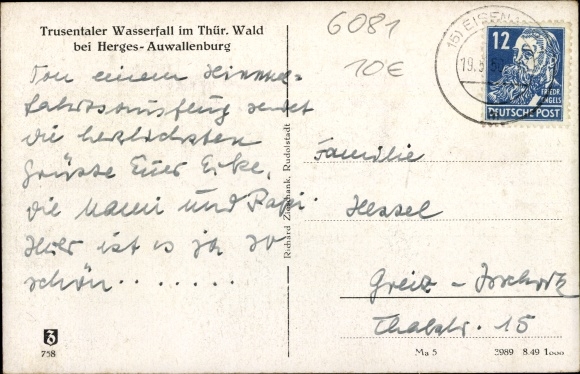 Trusentaler Wasserfall im Thür. Wald
bei Herges-Auwallenburg
Von einem Himmel-
fahrtsausflug sendet
die herzlichsten
Grüsse Euer Eike,
die Mami und Papi.
Hier ist es ja so
schön.......
758
Richard Zieschank, Rudolstadt
6081
10€
(15) EISEN
19.5.
12
FRIEDR.
ENGELS
DEUTSCHE POST
Familie
Hessel
Greiz - Irchwitz
Thalstr. 15
Ma 5 3989 8.49 1000